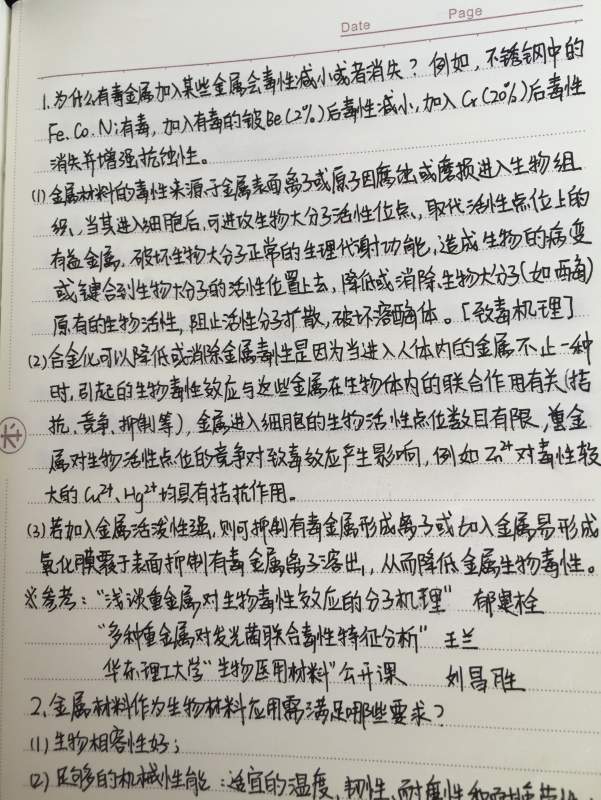 Date Page
1.为什么有毒金属加入某些金属会毒性减小或者消失？例如，不锈钢中的
Fe.Co.Ni有毒，加入有毒的铍Be(2%)后毒性减小，加入Cr(20%)后毒性
消失并增强抗蚀性。
(1)金属材料的毒性来源于金属表面离子或原子因腐蚀或磨损进入生物组
织、当其进入细胞后，可进攻生物大分子活性位点、取代活性点位上的
有益金属，破坏生物大分子正常的生理代谢功能，造成生物的病变
或键合到生物大分子的活性位置上去，降低或消除生物大分子(如酶)
原有的生物活性，阻止活性分子扩散，破坏溶酶体。[致毒机理]
(2)合金化可以降低或消除金属毒性是因为当进入人体内的金属不止一种
时，引起的生物毒性效应与这些金属在生物体内的联合作用有关(拮
抗、竞争、抑制等)，金属进入细胞的生物活性点位数目有限，重金
属对生物活性点位的竞争对致毒效应产生影响，例如Zn²⁺对毒性较
大的Cu²⁺、Hg²⁺均具有拮抗作用。
(3)若加入金属活泼性强，则可抑制有毒金属形成离子或加入金属易形成
氧化膜覆于表面抑制有毒金属离子溶出，从而降低金属生物毒性。
※参考："浅谈重金属对生物毒性效应的分子机理" 郁建栓
"多种重金属对发光菌联合毒性特征分析" 王兰
华东理工大学"生物医用材料"公开课 刘昌胜
2.金属材料作为生物材料应用需满足哪些要求？
(1)生物相容性好；
(2)足够的机械性能：适宜的温度，韧性，耐磨性和